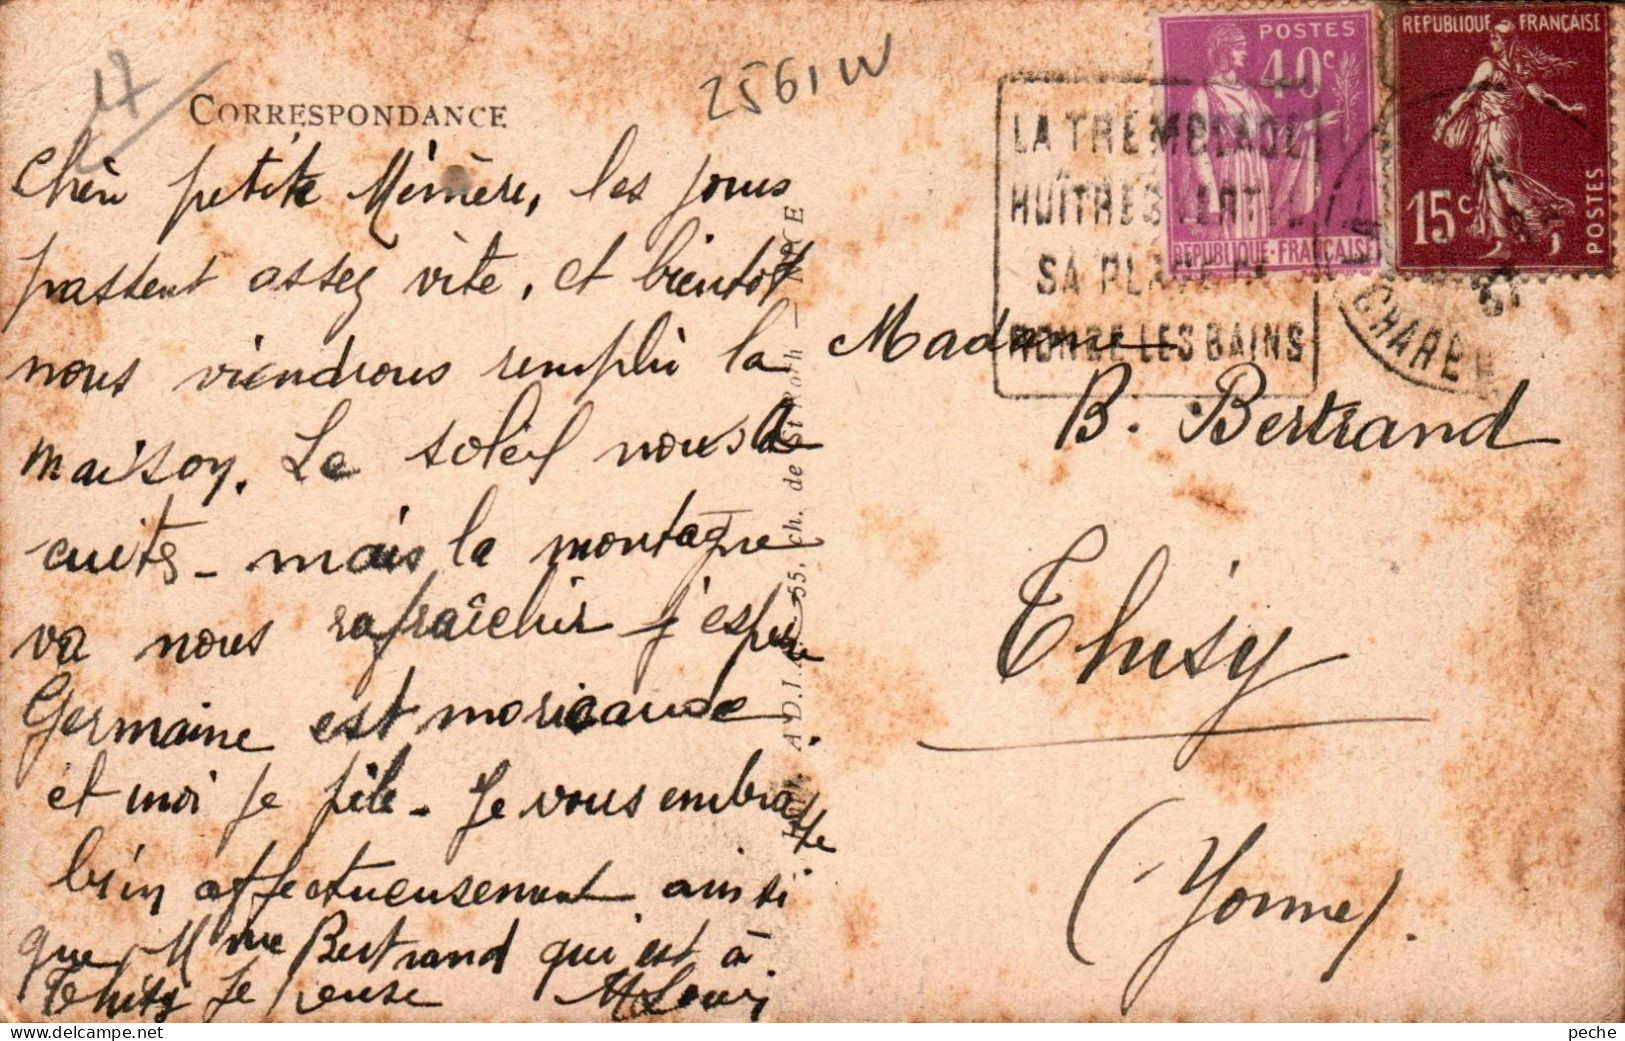 17
2561W
CORRESPONDANCE
Chère petite Mémère, les jours
passent assez vite, et bientôt
nous viendrons remplir la
maison. Le soleil nous a
cuits - mais la montagne
va nous rafraîchir j'espère
Germaine est moricaude
et moi je pèle - Je vous embrasse
bien affectueusement ainsi
que Mme Bertrand qui est à
Thisy je pense
POSTES
40c
REPUBLIQUE FRANÇAISE
REPUBLIQUE FRANÇAISE
15c
POSTES
LA TREMBLADE
HUÎTRES VERTES
SA PLAGE
RONCE LES BAINS
Madame
B. Bertrand
Thisy
(Yonne).
ch. de
55,
peche